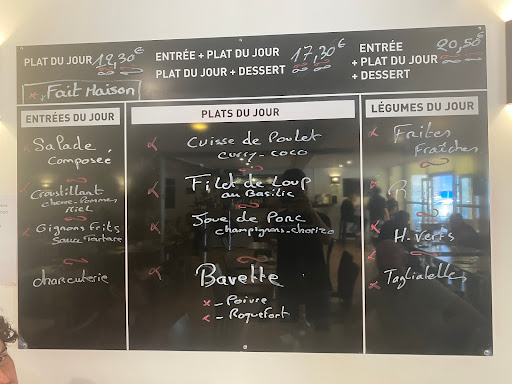 PLAT DU JOUR 12,30€
ENTRÉE + PLAT DU JOUR
PLAT DU JOUR + DESSERT
17,30€
ENTRÉE
+ PLAT DU JOUR
+ DESSERT
20,50€
Fait Maison
ENTRÉES DU JOUR
Salade
Composée
Croustillant
chèvre-Pommes
Miel
Gignons Frits
Sauce Tartare
charcuterie
PLATS DU JOUR
Cuisse de Poulet
curry-coco
Filet de Loup
au Basilic
Joue de Porc
champignons-chorizo
Bavette
- Poivre
- Roquefort
LÉGUMES DU JOUR
Frites
Fraîches
R
H-verts
Tagliatelles